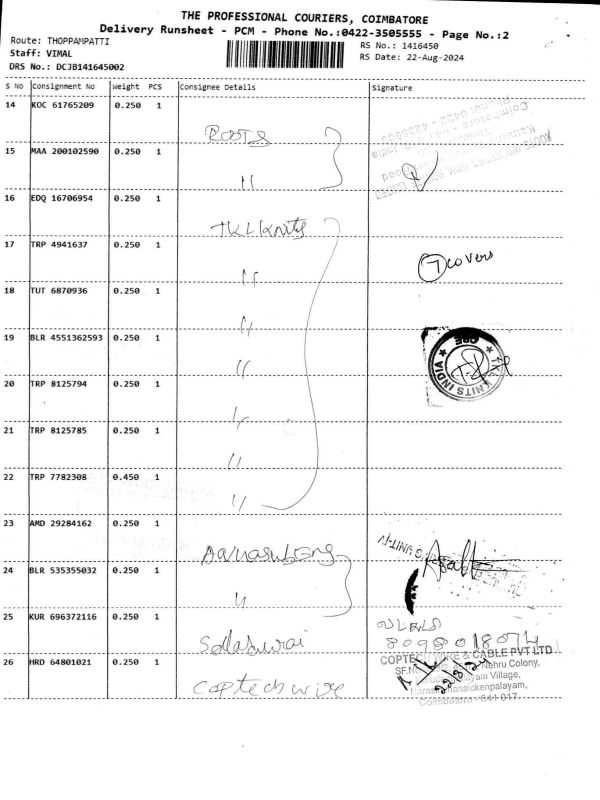 THE PROFESSIONAL COURIERS, COIMBATORE
Delivery Runsheet - PCM - Phone No.:0422-3505555 - Page No.:2
Route: THOPPAMPATTI
Staff: VIMAL
DRS No.: DCJB141645002
RS No.: 1416450
RS Date: 22-Aug-2024
S No Consignment No Weight PCS Consignee Details Signature
14 KOC 61765209 0.250 1 ROOTS
15 MAA 200102590 0.250 1 "
16 EDQ 16706954 0.250 1 TKL Knits
17 TRP 4941637 0.250 1 " 7 covers
18 TUT 6870936 0.250 1 "
19 BLR 4551362593 0.250 1 "
TKL KNITS INDIA CBE
20 TRP 8125794 0.250 1 "
21 TRP 8125785 0.250 1 "
22 TRP 7782308 0.450 1 "
23 AMD 29284162 0.250 1
24 BLR 535355032 0.250 1 "
25 KUR 696372116 0.250 1 Selladurai
8098018074
26 HRD 64801021 0.250 1 Coptech wire
COPTECH WIRE & CABLE PVT LTD
Nehru Colony,
Village,
22/8/24
Coimbatore - 641 017.